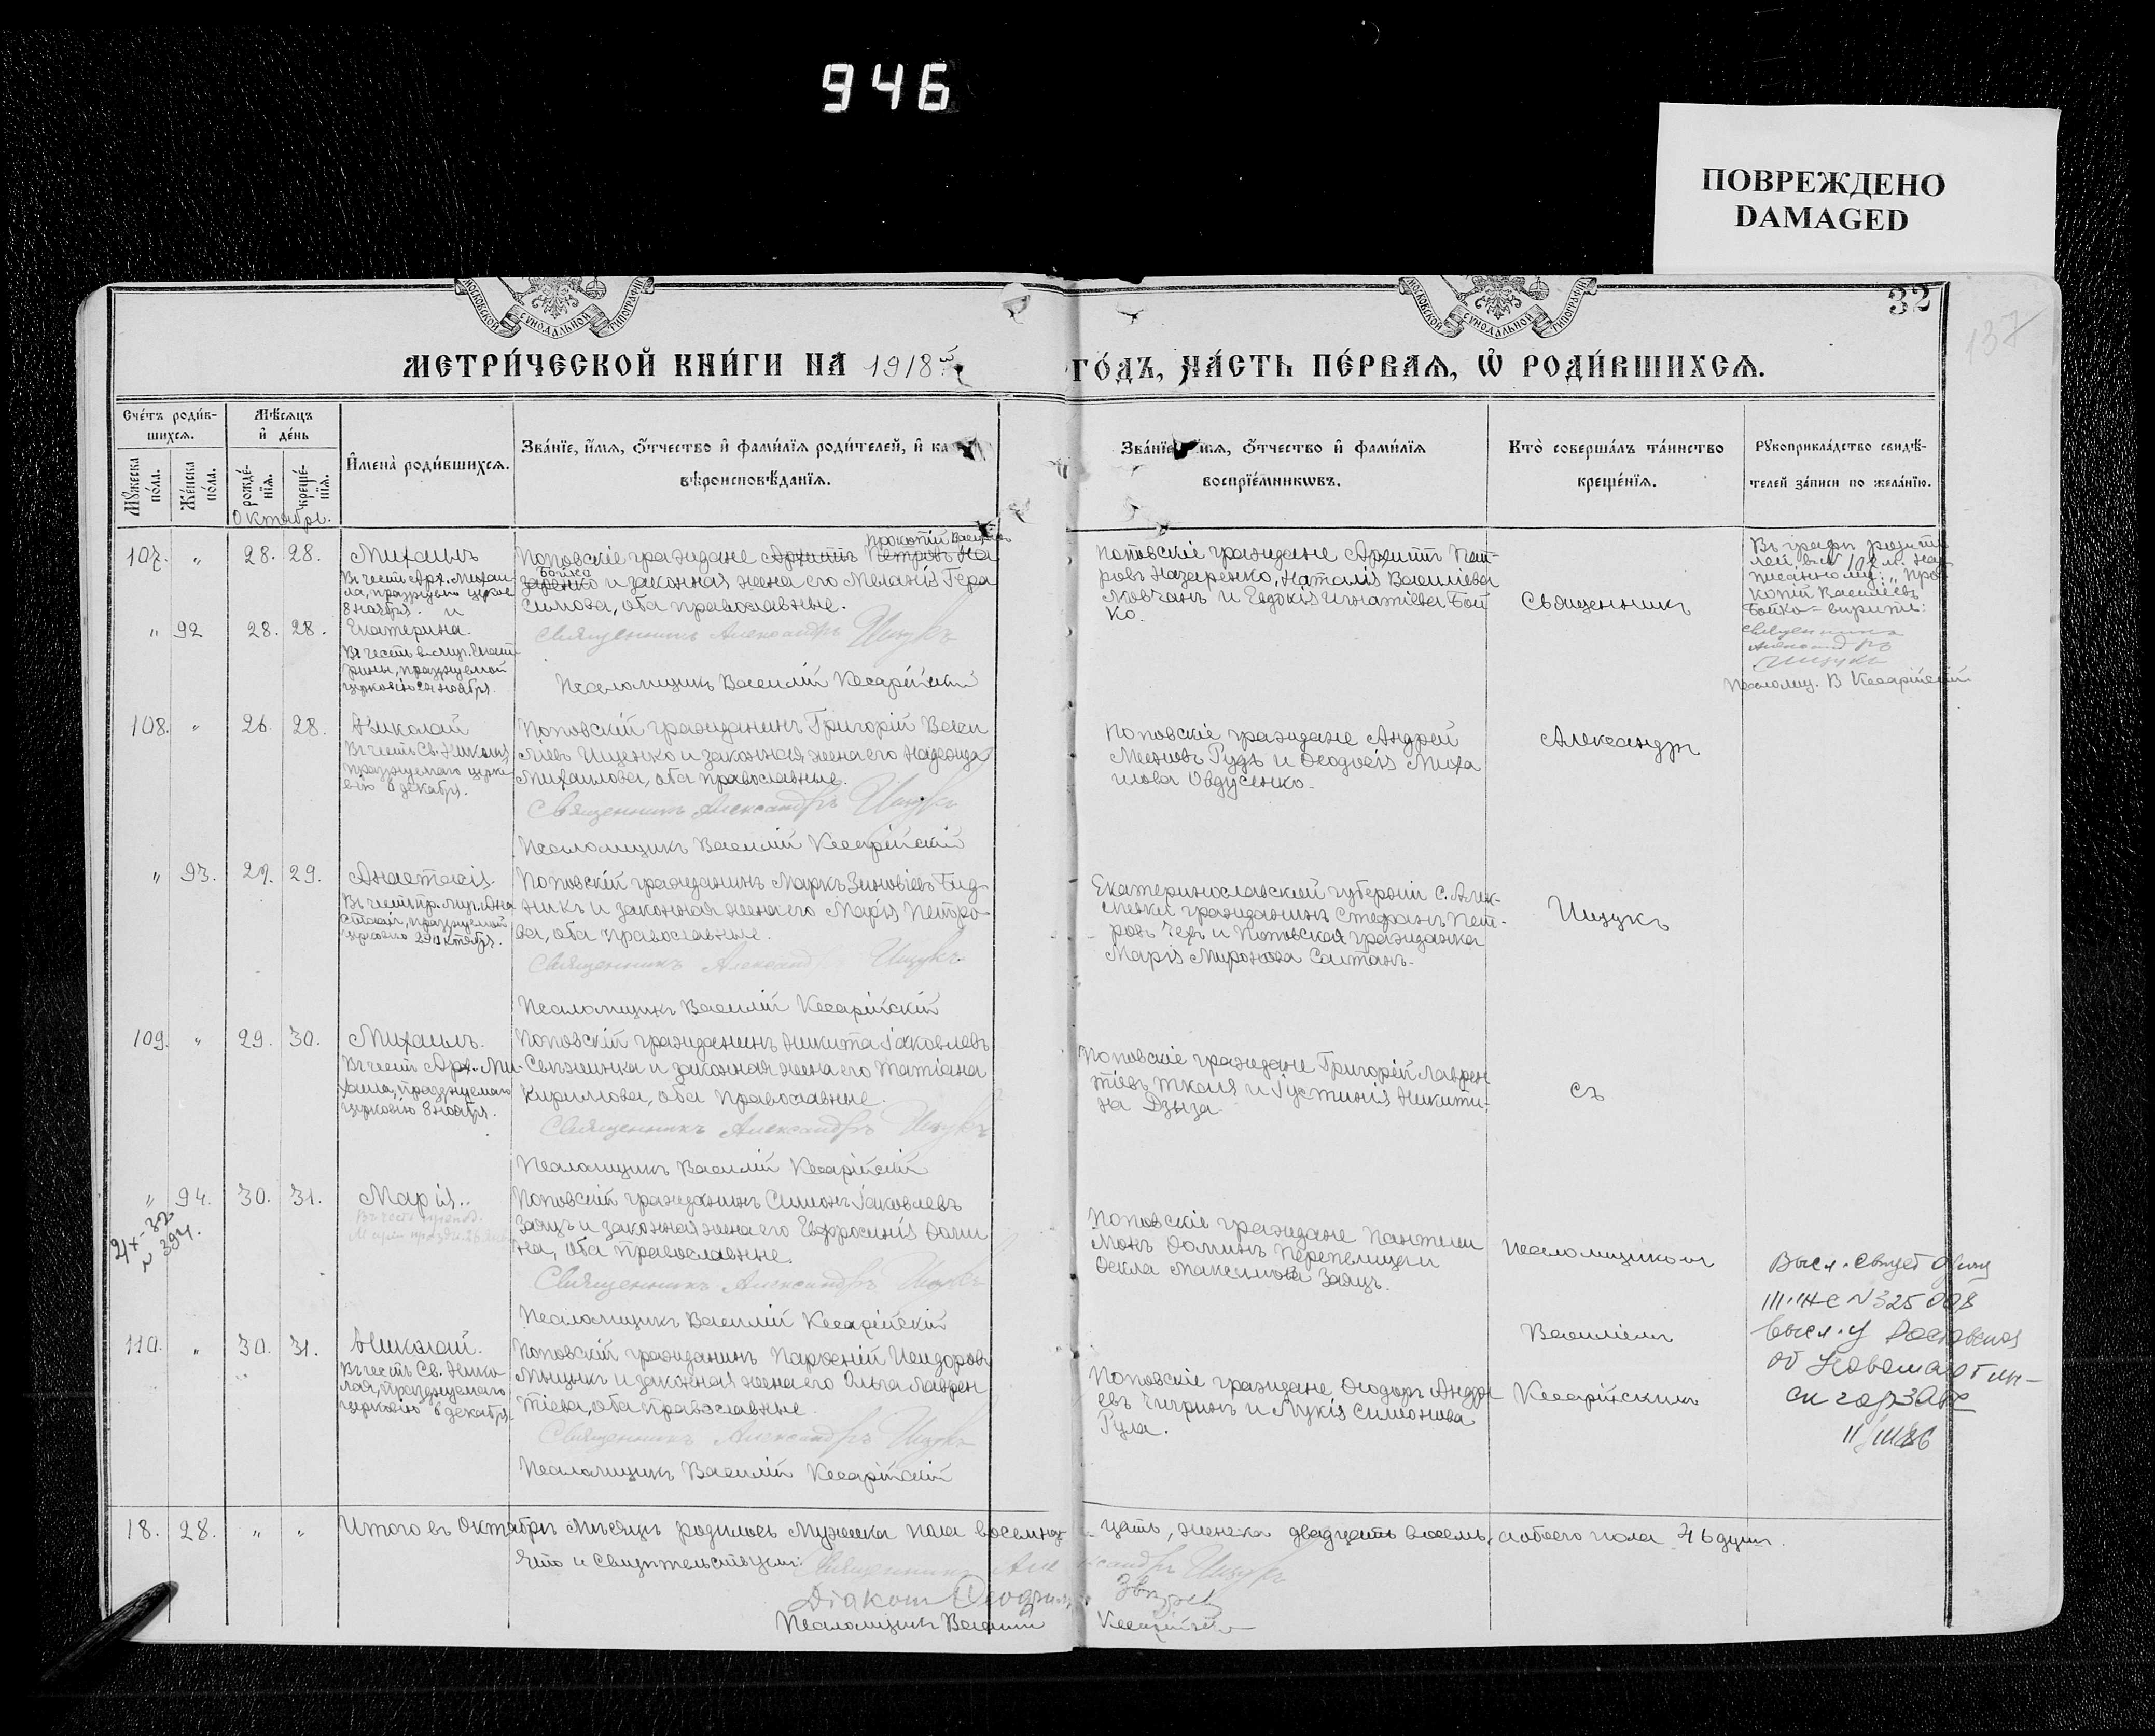 946
ПОВРЕЖДЕНО
DAMAGED
МОСКОВСКОЙ СѴНОДАЛЬНОЙ ТИПОГРАФІИ
МОСКОВСКОЙ СѴНОДАЛЬНОЙ ТИПОГРАФІИ
32
137
МЕТРИ́ЧЕСКОЙ КНИ́ГИ НА 1918 й ГО́ДЪ, ЧА́СТЬ ПЕ́РВАѦ, Ѽ РОДИ́ВШИХСѦ.
Сче́тъ роди́вшихсѧ.
Мꙋ́жеска по́ла.
Же́нска по́ла.
Мѣ́сѧцъ и҆ де́нь
рожде́нїѧ.
креще́нїѧ.
Октябрь.
И҆мена̀ роди́вшихсѧ.
Зва́нїе, и҆́мѧ, ѻ҆́тчество и҆ фами́лїѧ роди́телей, и҆ ка
вѣроисповѣ́данїѧ.
Зва́нїе мѧ, ѻ҆́тчество и҆ фами́лїѧ
воспрїе́мникѡвъ.
Кто̀ соверша́лъ та́инство
креще́нїѧ.
Рꙋкоприкла́дство свидѣ́-
телей за́писи по жела́нїю.
107. " 28. 28. Михаилъ
Въ честь Арх. Михаи-
ла, празднуемаго церков.
8 ноября. и
Прокопій Васильевъ
Поповскіе граждане Архиппъ Петровъ На
Бойко
заренко и законная жена его Меланія Гера
симова, оба православные.
Священникъ Александръ Ищукъ
Псаломщикъ Василій Кесарійскій
Поповскіе граждане Архиппъ Пет-
ровъ Назаренко, Наталія Васильева
Мовчанъ и Евдокія Игнатіева Бой
ко.
Священникъ
Въ графѣ родите
лей
писанному: „Про
копій Васильевъ
Бойко"- вѣрить:
Священникъ
Александръ
Ищукъ
Псаломщ. В Кесарійскій
" 92 28. 28. Екатерина.
Въ честь в-муч. Екате
рины, празднуемой
церковію 24 ноября.
108. " 26. 28. Николай
Въ честь Св. Николая,
празднуемаго церко-
вію 6 декабря.
Поповскій гражданинъ Григорій Васи
ліевъ Ищенко и законная жена его Надежда
Михаилова, оба православные.
Священникъ Александръ Ищукъ
Псаломщикъ Василій Кесарійскій
Поповскіе граждане Андрей
Рудь и Ѳеодосія Миха
илова Овдусенко.
Александръ
" 93. 27. 29. Анастасія.
Въ честь пр. муч. Ана
стасіи, празднуемой
церковію 29 октября.
Поповскій гражданинъ Маркъ Зиновіевъ Бид-
никъ и законная жена его Марія Петро-
ва, оба православные.
Священникъ Александръ Ищукъ.
Псаломщикъ Василій Кесарійскій
Екатеринославской губерніи с. Алек-
сѣевки гражданинъ Стефанъ Пет-
ровъ и Поповская гражданка
Марія Миронова Салтанъ.
Ищукъ
109. " 29. 30. Михаилъ.
Въ честь Арх. Ми-
хаила, празднуемаго
церковію 8 ноября.
Поповскій гражданинъ Никита Іаковлевъ
и законная жена его Татіана
Кириллова, оба православные.
Священникъ Александръ Ищукъ
Псаломщикъ Василій Кесарійскій
Поповскіе граждане Григорій Лаврен
тіевъ Ткаля и Іустинія Никити-
на Дзыза.
съ
" 94. 30. 31. Марія.
Въ честь препод.
Поповскій гражданинъ Симонъ Іаковлевъ
Заяцъ и законная жена его Евфросинія Доми
на, оба православные.
Священникъ Александръ Ищукъ
Псаломщикъ Василій Кесарійскій
Поповскіе граждане Пантели
монъ Доминъ Перепелица и
Ѳекла Максимова Заяцъ.
Псаломщикомъ
Василіемъ
110. " 30. 31. Николай.
Въ честь Св. Нико-
лая, празднуемаго
церковію 6 декабря.
Поповскій гражданинъ Парѳеній Исидоровъ
и законная жена его Ольга Лаврен
тіева, оба православные.
Священникъ Александръ Ищукъ
Псаломщикъ Василій Кесарійскій
Поповскіе граждане Ѳеодоръ Андре-
евъ Чигринъ и Лукія Симонова
Рула.
Кесарійскимъ
N325008
18. 28. " " Итого въ Октябрѣ мѣсяцѣ родилось мужеска пола восемнадцать, женска двадцать восемь, а обоего пола 46 душъ.
Что и свидѣтельствуемъ: Священникъ Александръ Ищукъ
Діаконъ
Псаломщикъ Василій Кесарійскій